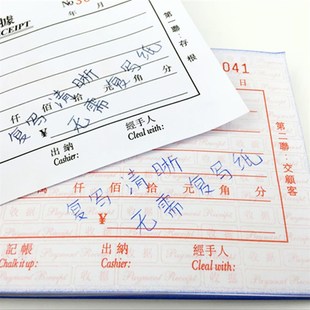 據
CEIPT
No
年 月
第一聯：存根
仟 佰 拾 元 角 分
¥
复写清晰 无需 复写纸
出納 經手人
Cashier: Cleal with:
041
日
第二聯：交顧客
仟 佰 拾 元 角 分
¥
复写清晰 无需 复写纸
記帳 出納 經手人
Chalk it up: Cashier: Cleal with: